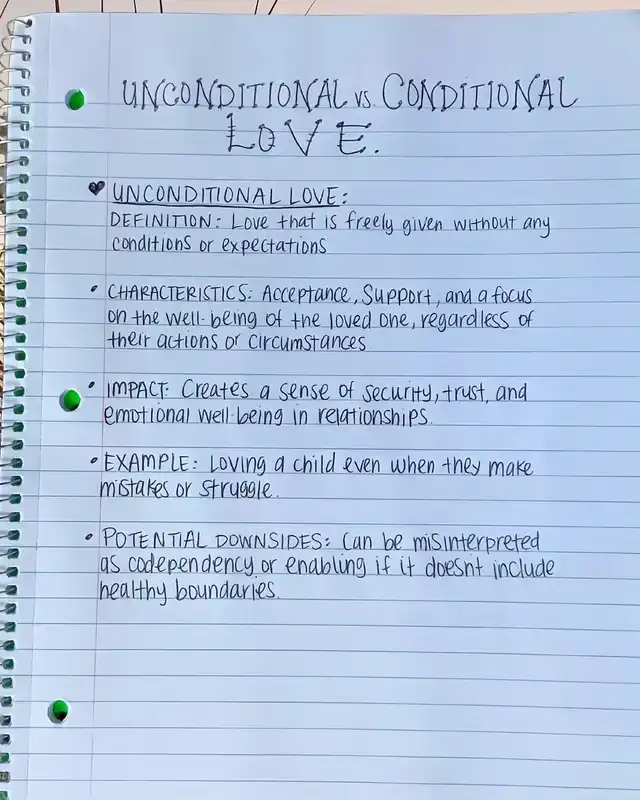 UNCONDITIONAL VS. CONDITIONAL
LOVE.
UNCONDITIONAL LOVE:
DEFINITION: Love that is freely given without any
conditions or expectations
• CHARACTERISTICS: Acceptance, Support, and a focus
on the well-being of the loved one, regardless of
their actions or circumstances
• IMPACT: Creates a sense of security, trust, and
emotional well-being in relationships.
• EXAMPLE: Loving a child even when they make
mistakes or struggle.
• POTENTIAL DOWNSIDES: Can be misinterpreted
as codependency or enabling if it doesnt include
healthy boundaries.